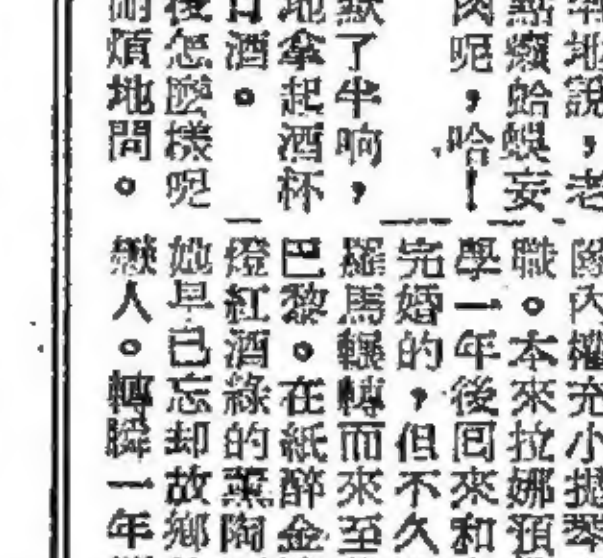 地說，老
點癩蛤蟆妄
肉呢，哈！
默了半响，
地拿起酒杯
酒。
後怎麼樣呢
耐煩地問。
隊內權充小提琴
職。本來拉娜預
學一年後囘來和
完婚的，但不久
羅馬輾轉而來至
巴黎。在紙醉金
燈紅酒綠的薰陶
她早已忘却故鄉
戀人。轉瞬一年